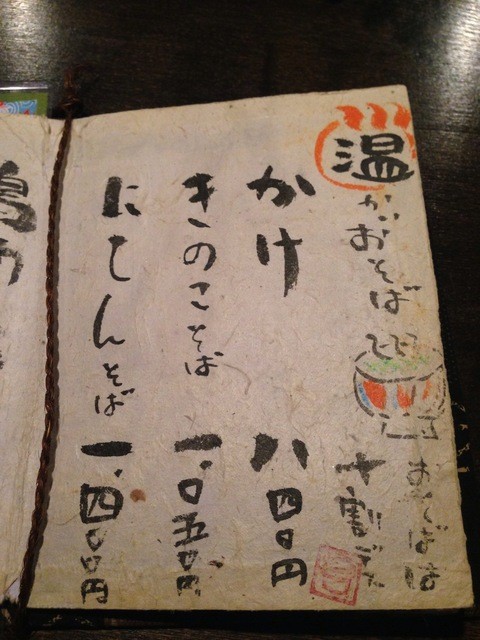 温
かいおそば
おそばは
十割デス
かけ 八四〇円
きのこそば 一、〇五〇円
にしんそば 一、四〇〇円